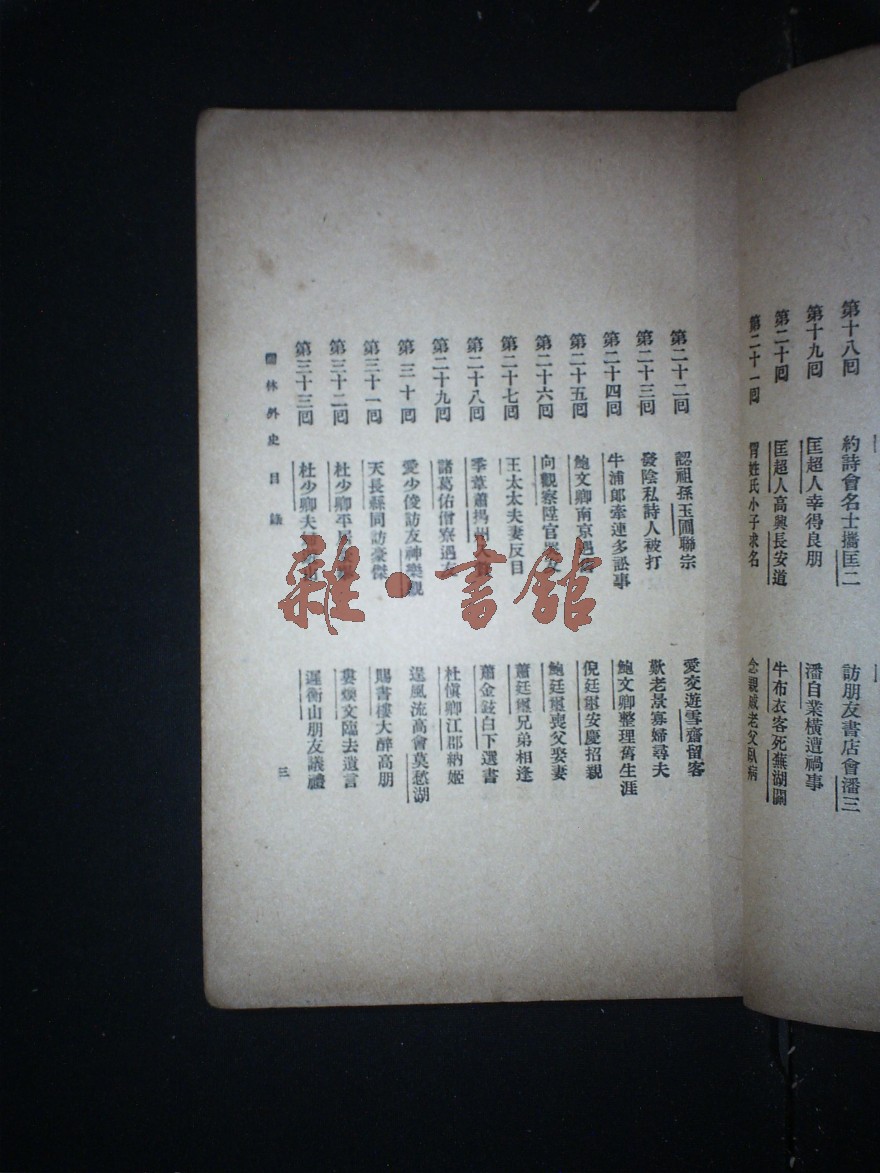 第十八回 約詩會名士攜匡二 訪朋友書店會潘三
第十九回 匡超人幸得良朋 潘自業橫遭禍事
第二十回 匡超人高興長安道 牛布衣客死蕪湖關
第二十一回 冒姓氏小子求名 念親戚老父臥病
第二十二回 認祖孫玉圃聯宗 愛交遊雪齋留客
第二十三回 發陰私詩人被打 歎老景寡婦尋夫
第二十四回 牛浦郎牽連多訟事 鮑文卿整理舊生涯
第二十五回 鮑文卿南京遇 倪廷璽安慶招親
第二十六回 向觀察陞官 鮑廷璽喪父娶妻
第二十七回 王太太夫妻反目 蕭廷璽兄弟相逢
第二十八回 季葦蕭揚州入 蕭金鉉白下選書
第二十九回 諸葛佑僧寮遇友 杜愼卿江郡納姬
第三十回 愛少俊訪友神樂觀 逞風流高會莫愁湖
第三十一回 天長縣同訪豪傑 賜書樓大醉高朋
第三十二回 杜少卿平居 婁煥文臨去遺言
第三十三回 杜少卿夫 遲衡山朋友議禮
儒林外史 目錄 三
雜·書館